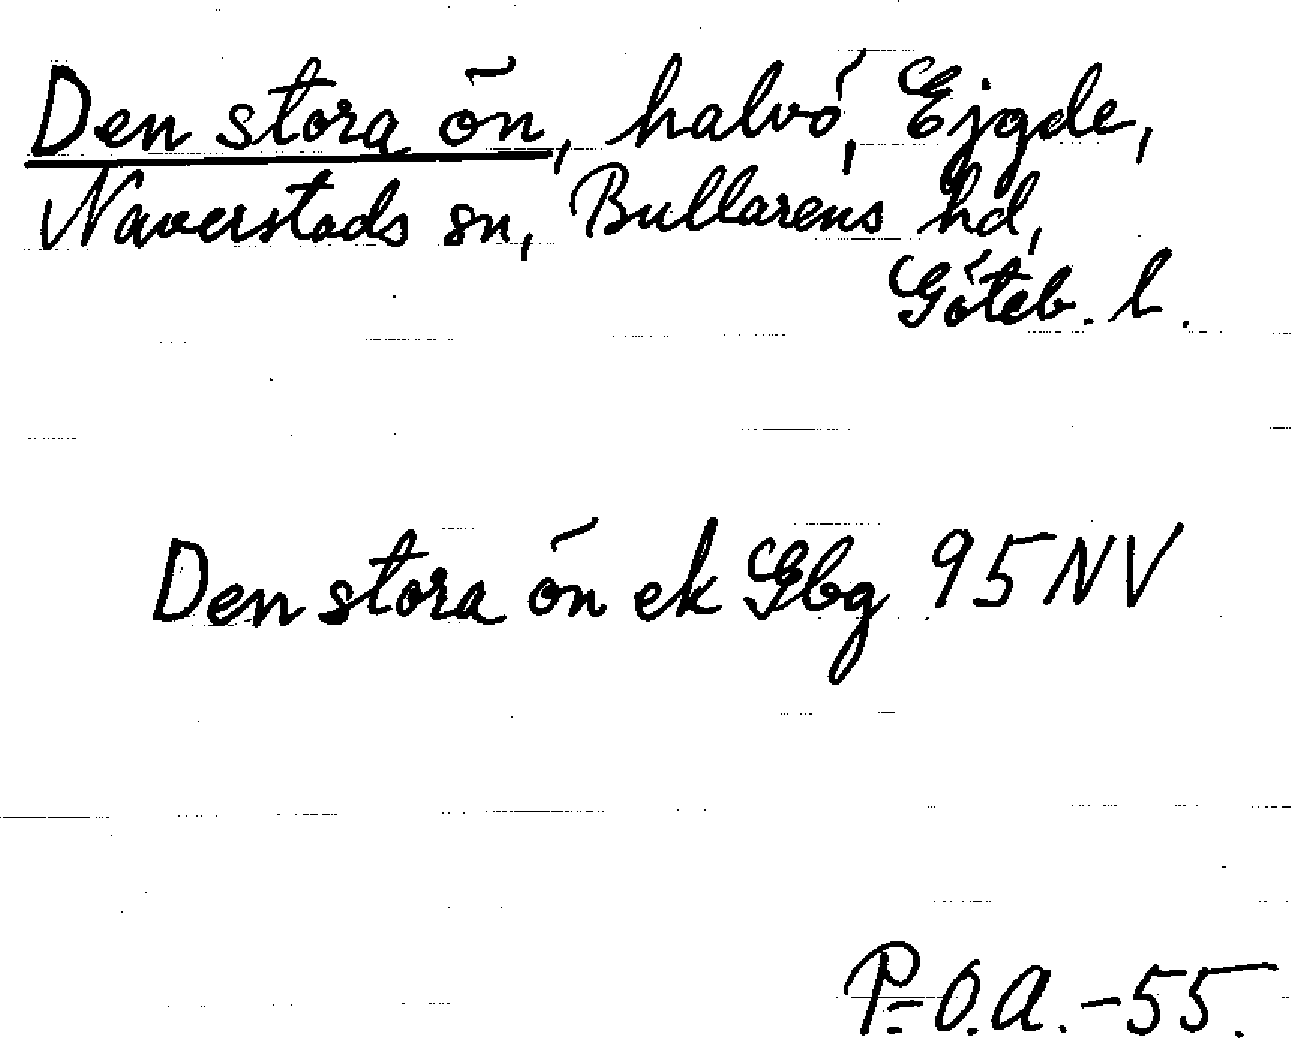 Den stora ön, halvö, Ejgde,
Naverstads sn, Bullarens hd,
Göteb. l.
Den stora ön ek Gbg 95 NV
P-O.A.-55.